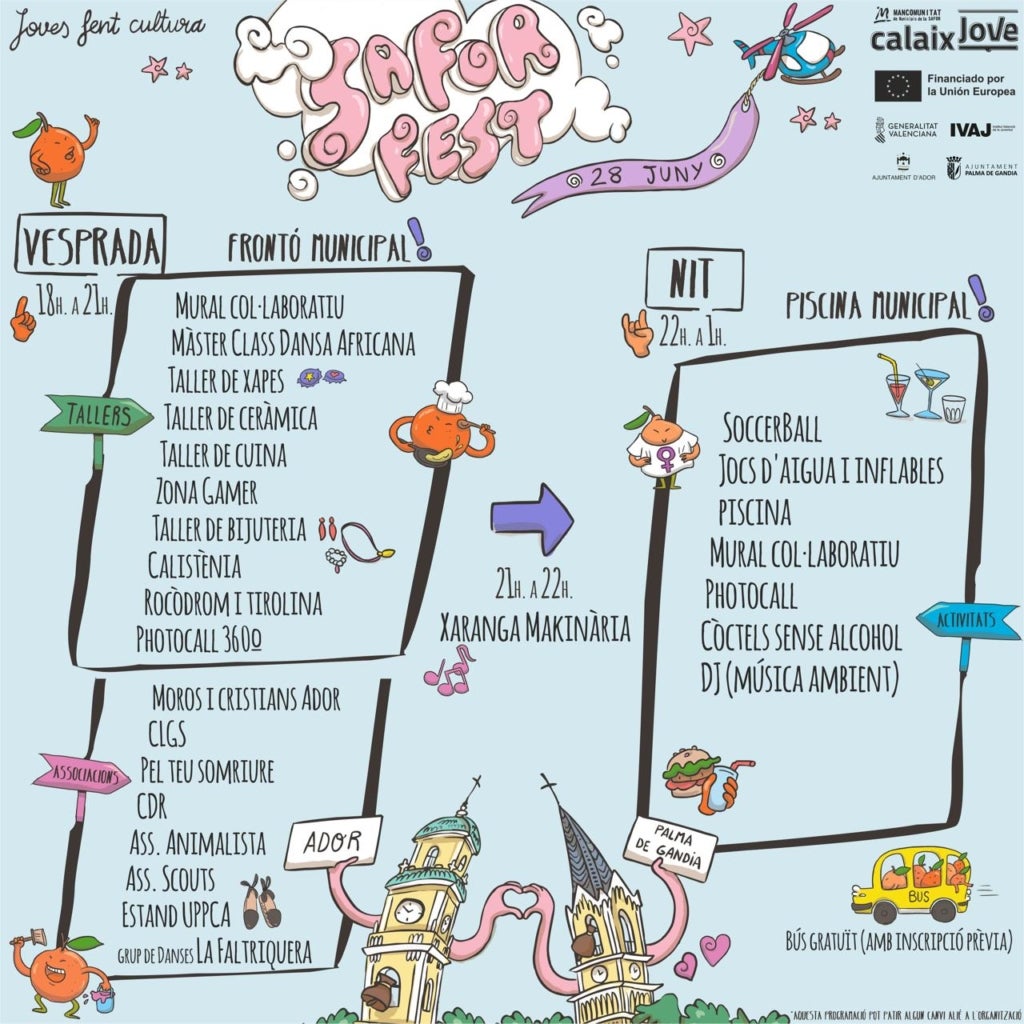 Joves fent cultura
SAFOR
FEST
28 JUNY
MANCOMUNITAT
de Municipis de la SAFOR
calaix JOVE
Financiado por
la Unión Europea
GENERALITAT
VALENCIANA
IVAJ
AJUNTAMENT D'ADOR
AJUNTAMENT
PALMA DE GANDIA
VESPRADA
18H. A 21H.
FRONTÓ MUNICIPAL!
TALLERS
MURAL COL·LABORATIU
MÀSTER CLASS DANSA AFRICANA
TALLER DE XAPES
TALLER DE CERÀMICA
TALLER DE CUINA
ZONA GAMER
TALLER DE BIJUTERIA
CALISTÈNIA
ROCÒDROM I TIROLINA
PHOTOCALL 360º
ASSOCIACIONS
MOROS I CRISTIANS ADOR
CLGS
PEL TEU SOMRIURE
CDR
ASS. ANIMALISTA
ASS. SCOUTS
ESTAND UPPCA
GRUP DE DANSES LA FALTRIQUERA
21H. A 22H.
XARANGA MAKINÀRIA
NIT
22H. A 1H.
PISCINA MUNICIPAL!
SOCCERBALL
JOCS D'AIGUA I INFLABLES
PISCINA
MURAL COL·LABORATIU
PHOTOCALL
CÒCTELS SENSE ALCOHOL
DJ (MÚSICA AMBIENT)
ACTIVITATS
ADOR
PALMA
DE GANDIA
BUS
BÚS GRATUÏT (AMB INSCRIPCIÓ PRÈVIA)
*AQUESTA PROGRAMACIÓ POT PATIR ALGUN CANVI ALIÉ A L ORGANITZACIÓ